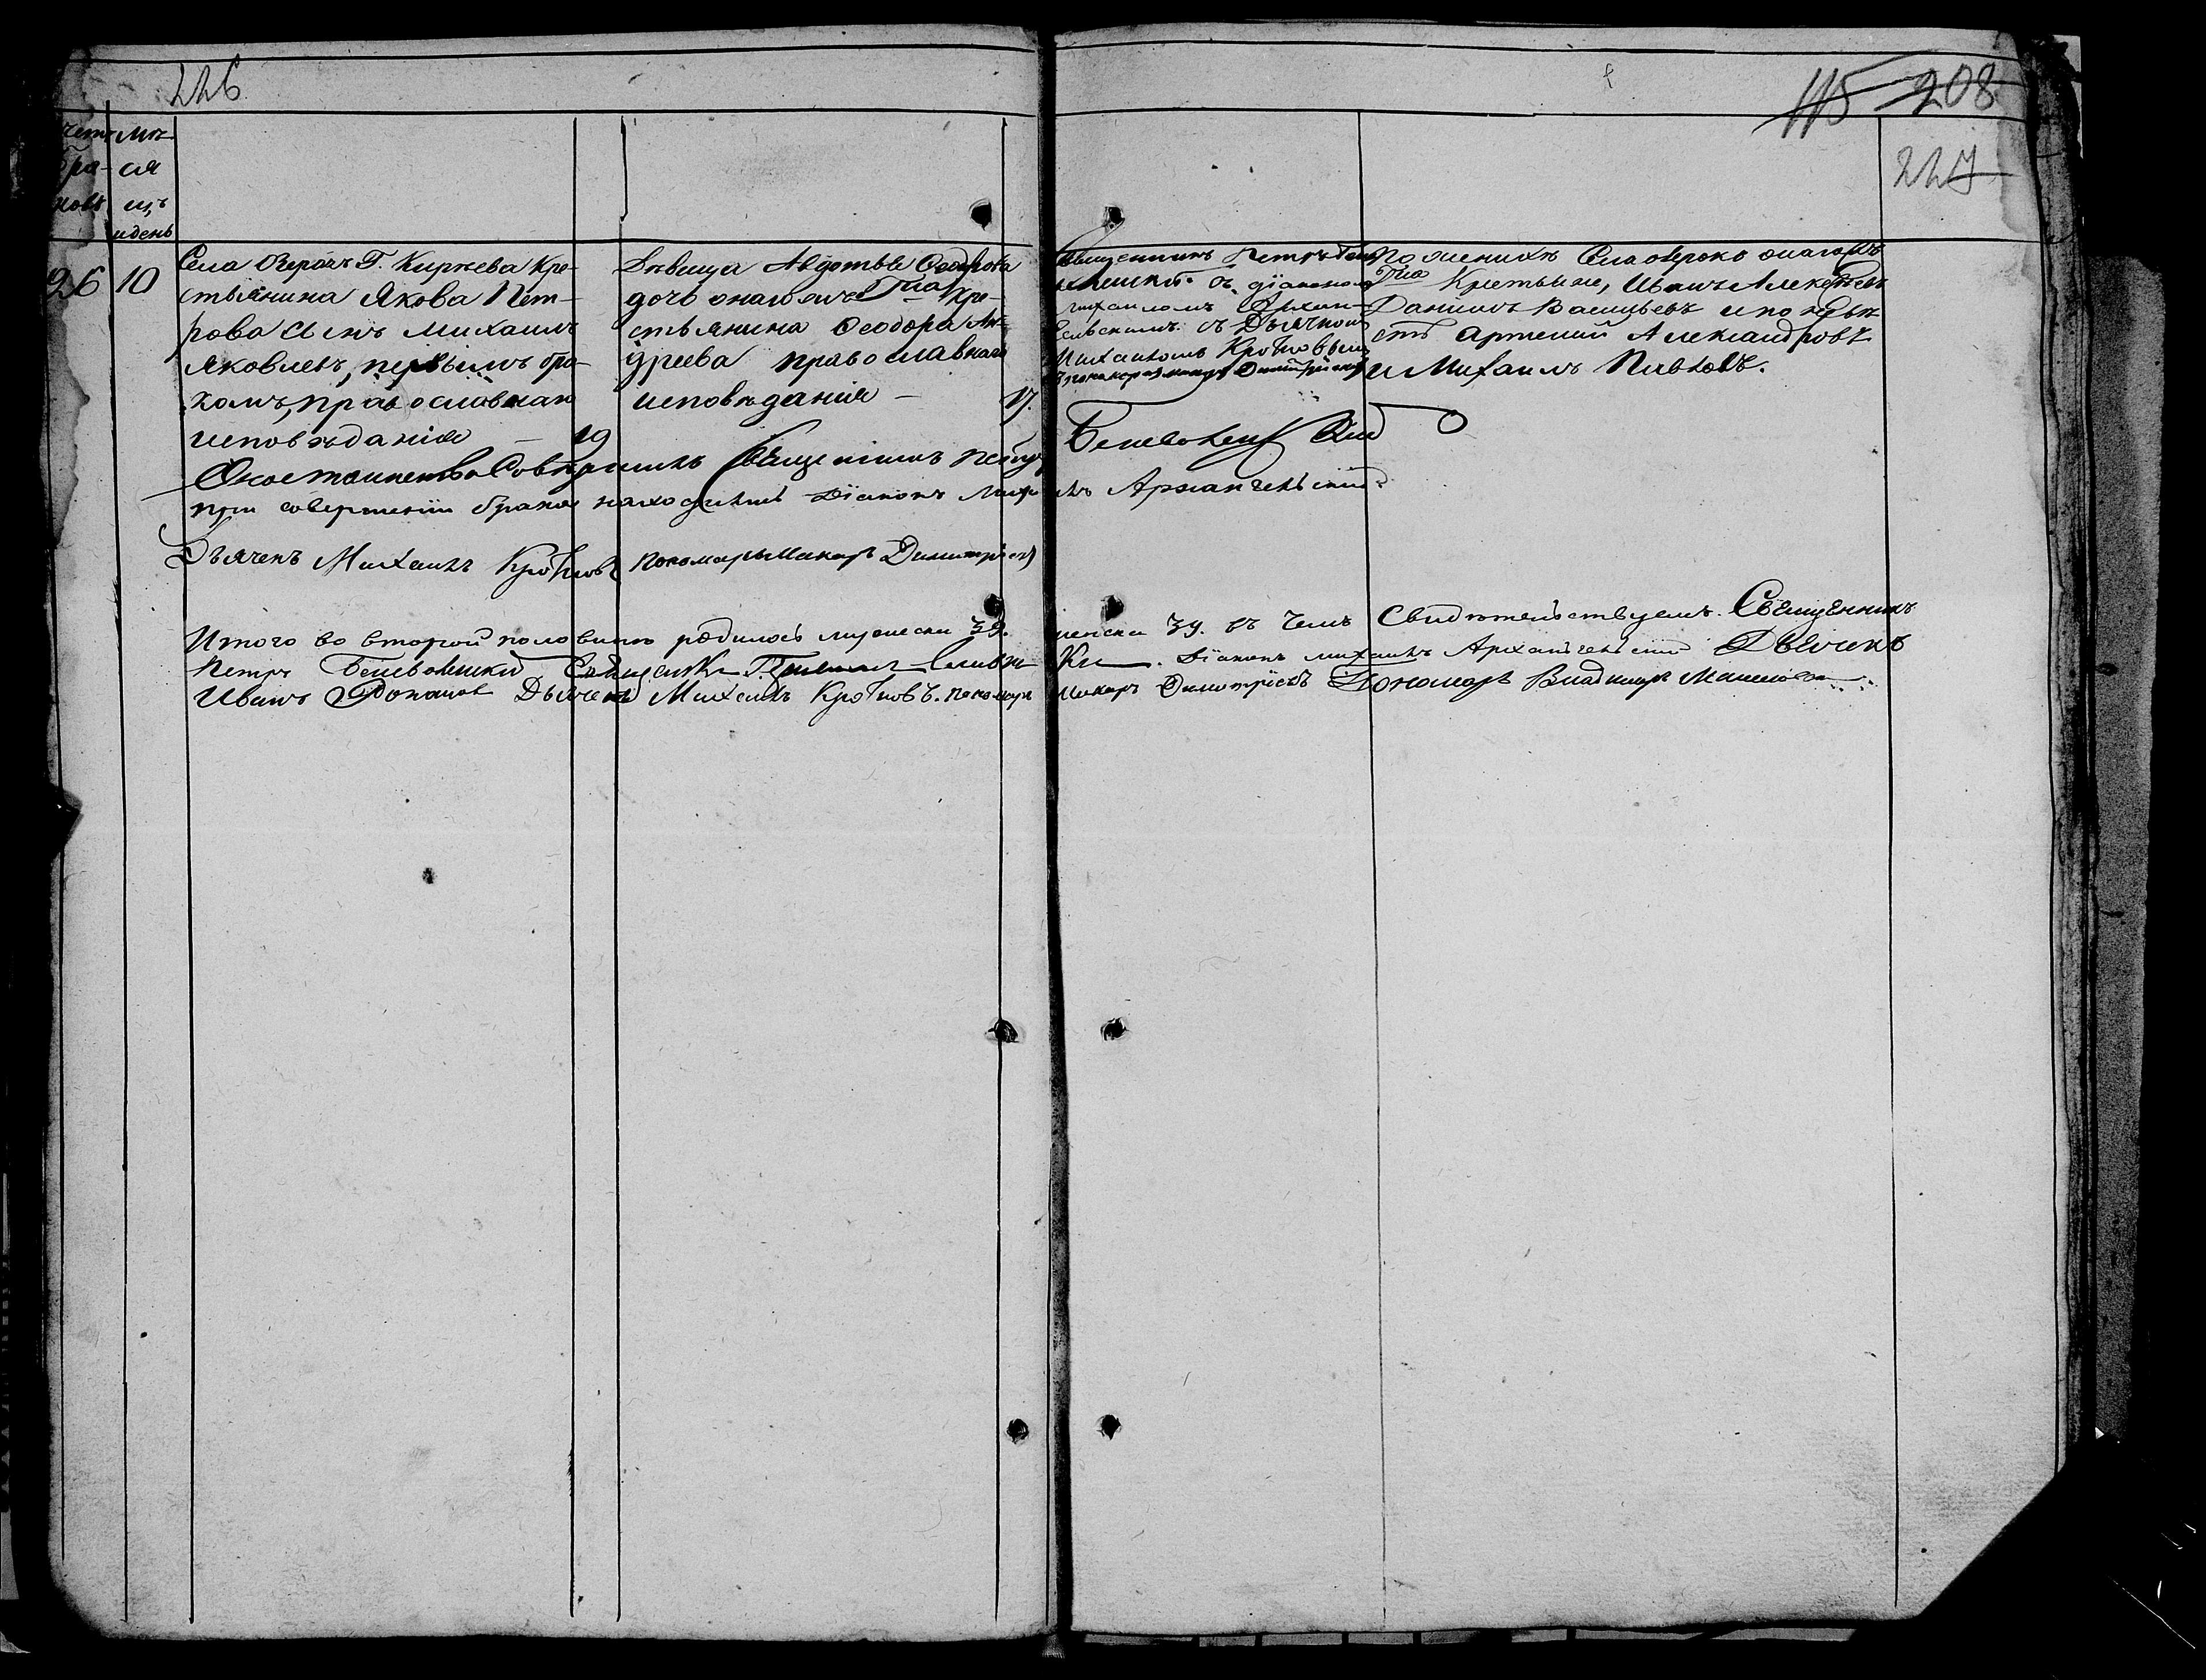 226
115 208
227
Счетъ
бра-
ковъ
Мѣ-
ся
цъ
и день
26 10
Села Озерокъ Г. Киреева Кре-
стьянина Якова Пет-
рова сынъ Михаилъ
Яковлевъ, первымъ бра-
комъ, православнаго
исповѣданія — 19
Дѣвица Авдотья Ѳеодорова
дочь онаго же Села Кре-
стьянина Ѳеодора Ан-
дреева православнаго
исповѣданія — 17.
Священникъ Петръ
съ діакономъ
Михаиломъ Архан-
гельскимъ съ Дьячкомъ
Михаиломъ Кротковымъ
По женихѣ Села Озерокъ онагожъ
Крестьяне, Иванъ Алексѣевъ
Данилъ Васильевъ и по невѣ
стѣ Артемий Александровъ
и Михаилъ Павловъ.
Оное таинство совершилъ Священникъ Петръ
при совершеніи брака находились Діаконъ Михаилъ Архангельскій
Дьячекъ Михаилъ Кротковъ пономарь Макаръ Димитріевъ
Итого во второй половинѣ родилось мужеска 39. женска 39. въ чемъ свидѣтельствуемъ. Священникъ
Петръ Діаконъ Михаилъ Архангельскій Дьячекъ
Иванъ Дьячекъ Михаилъ Кротковъ. пономарь Макаръ Димитріевъ Пономарь Владимиръ